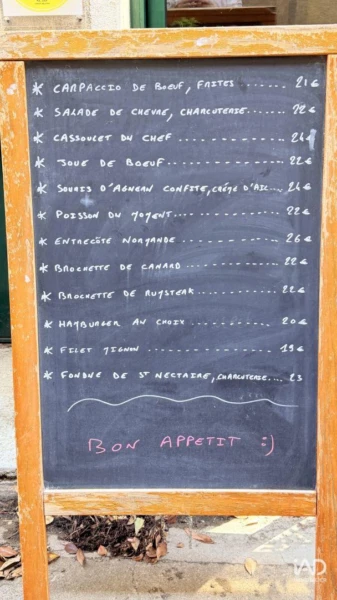 * CARPACCIO DE BOEUF, FRITES ....... 21€
* SALADE DE CHEVRE, CHARCUTERIE .... 22€
* CASSOULET DU CHEF ............ 24€
* JOUE DE BOEUF ............... 22€
* SOURIS D'AGNEAU CONFITE, CRÈME D'AIL ... 24€
* POISSON DU MOMENT ............ 22€
* ENTRECÔTE NORMANDE ........... 26€
* BROCHETTE DE CANARD .......... 22€
* BROCHETTE DE RUMSTEAK ........ 22€
* HAMBURGER AU CHOIX ........... 20€
* FILET MIGNON ............ 19€
* FONDUE DE ST NECTAIRE, CHARCUTERIE ... 23
BON APPETIT :)
IAD